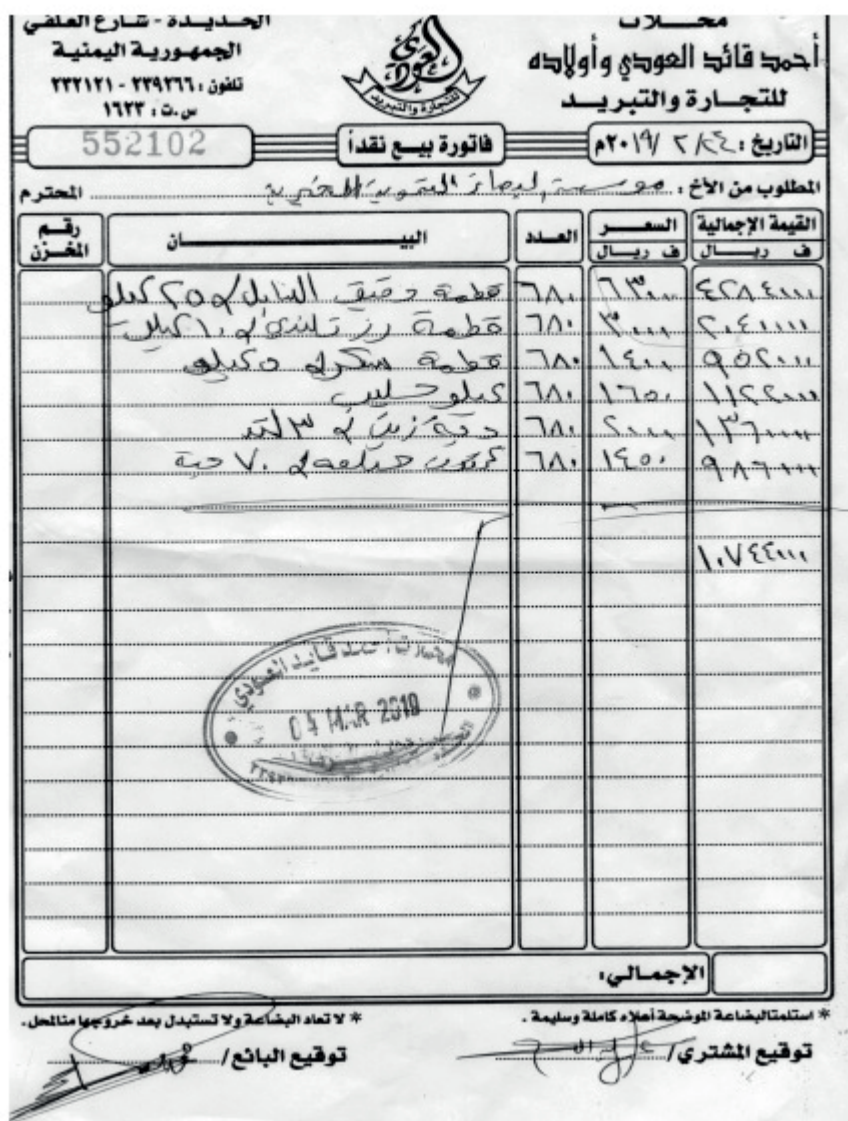 محـــلات
أحمد قائد العودي وأولاده
للتجــارة والتبريــد
العودي
للتجارة والتبريد
الحــديــدة - شارع العلفي
الجمهورية اليمنية
تلفون : ٢٣٩٢٦٦ - ٢٣٢١٢١
س.ت : ١٦٢٣
التاريخ : ٢٠١٩م
فاتورة بيــع نقداً
552102
المطلوب من الأخ : المحترم
القيمة الإجمالية السعــر العـدد البيـــــان رقــم المخـزن
ف ريــال ف ريــال
٤٢٨٤٠٠٠ ٦٣٠٠ ٦٨٠ قطمة دقيق السنابل ٢٥ كيلو
٢٠٤٠٠٠٠ ٣٠٠٠ ٦٨٠ قطمة رز تايلندي ١٠ كيلو
٩٥٢٠٠٠ ١٤٠٠ ٦٨٠ قطمة سكر ٥ كيلو
١١٢٢٠٠٠ ١٦٥٠ ٦٨٠ كيلو حليب
١٣٦٠٠٠٠ ٢٠٠٠ ٦٨٠ زيت ٣ لتر
٩٨٦٠٠٠ ١٤٥٠ ٦٨٠ ٧٠ حبة
١٠٧٤٤٠٠٠
محلات أحمد قايد العودي
MAR 2019
الإجمـالي:
* استلمت البضاعة الموضحة أعلاه كاملة وسليمة .
* لا تعاد البضاعة ولا تستبدل بعد خروجها من المحل.
توقيع المشتري/
توقيع البائع/